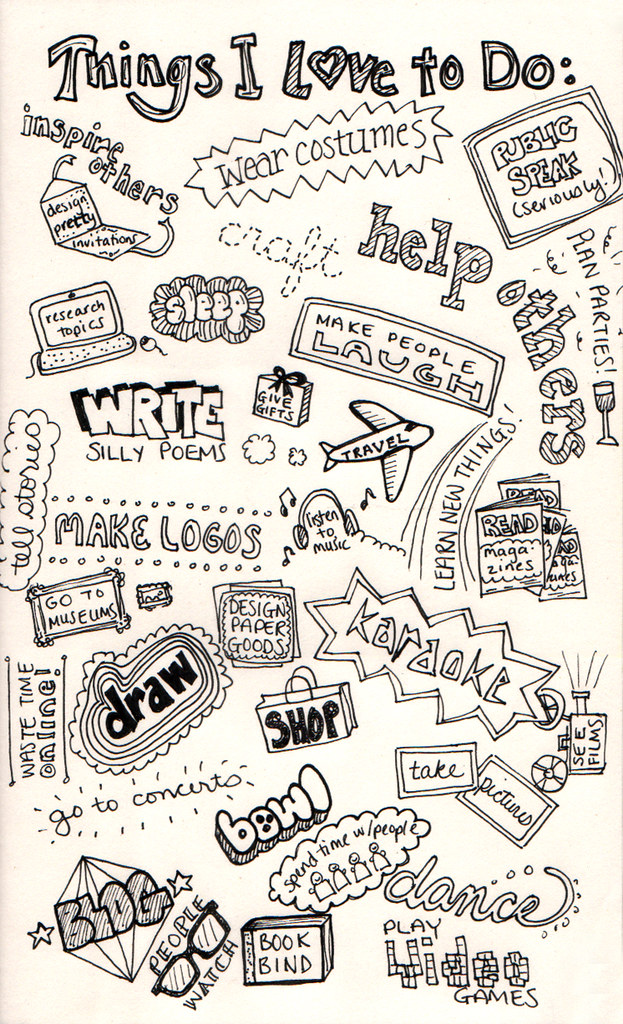 Things I Love to Do:
inspire
others
wear costumes
PUBLIC
SPEAK
(seriously!)
design
pretty
invitations
craft
help
others
PLAN PARTIES!
research
topics
sleep
MAKE PEOPLE
LAUGH
WRITE
SILLY POEMS
GIVE
GIFTS
TRAVEL
LEARN NEW THINGS!
tell stories
MAKE LOGOS
listen
to
music
READ
READ
maga-
zines
READ
zines
GO TO
MUSEUMS
DESIGN
PAPER
GOODS
karaoke
WASTE TIME
online!
draw
SHOP
SEE
FILMS
take
pictures
go to concerts
bowl
spend time w/people
dance
BLOG
PEOPLE
WATCH
BOOK
BIND
PLAY
Video
GAMES